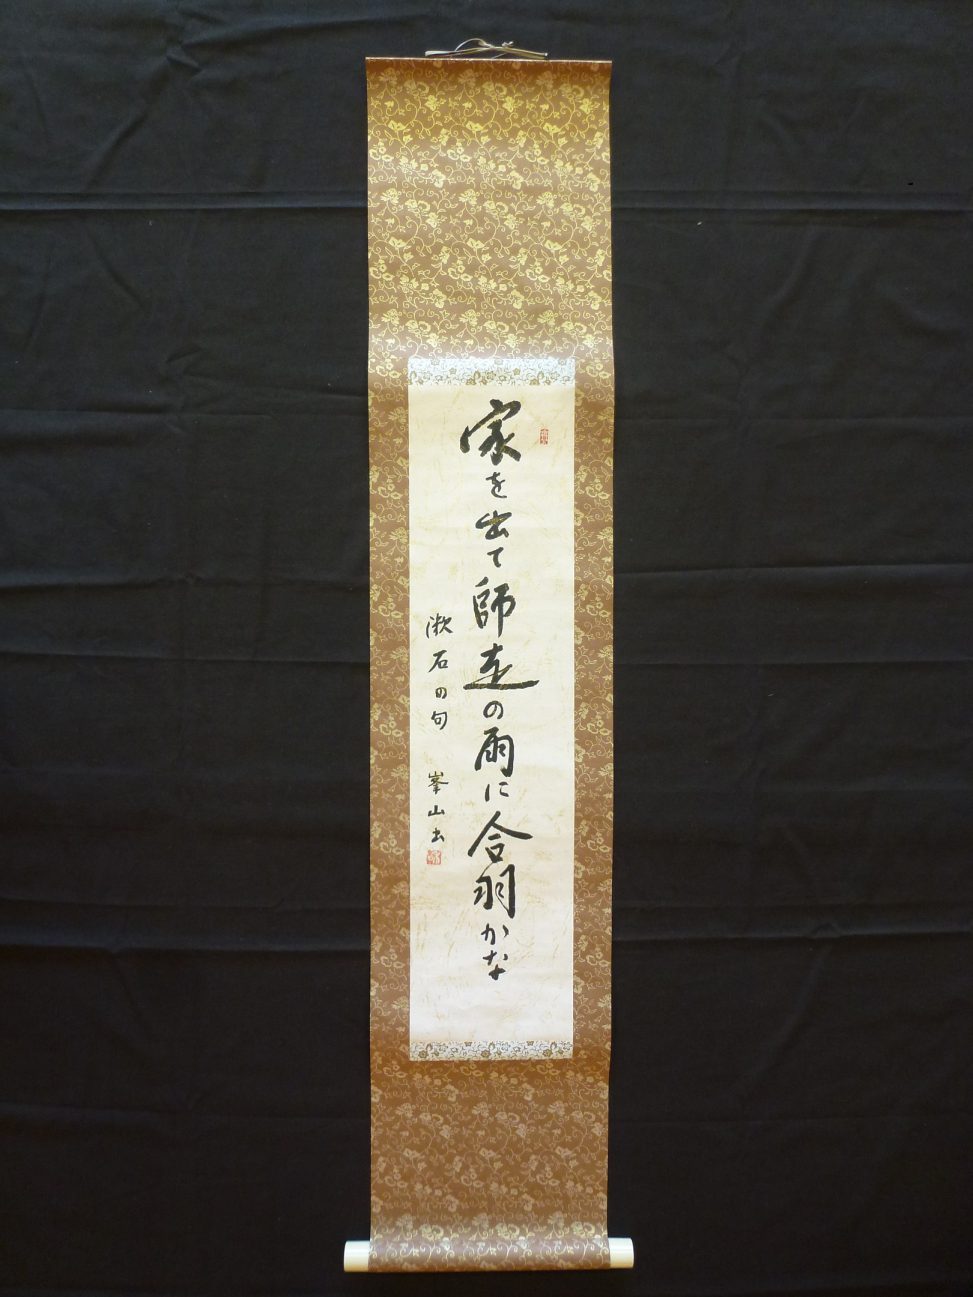 家を出て師走の雨に合羽かな
漱石の句 峯山書